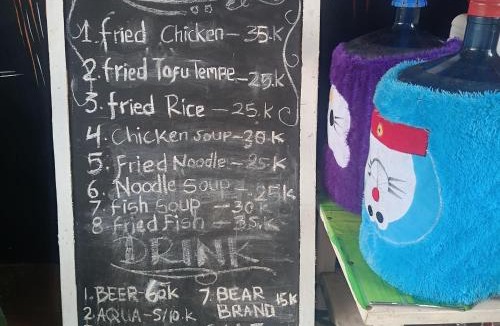 1. fried Chicken - 35.K
2. fried Tofu Tempe - 25.K
3. fried Rice - 25.K
4. Chicken Soup - 30.K
5. Fried Noodle - 25.K
6. Noodle Soup - 25K
7. fish Soup - 30K
8 fried Fish - 35.K
DRINK
1. BEER - 60K 7. BEAR BRAND 15K
2 AQUA - 5/10.K